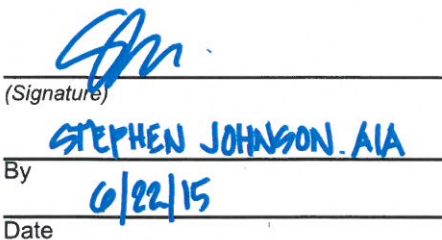 (Signature)
STEPHEN JOHNSON. AIA
By
6/22/15
Date